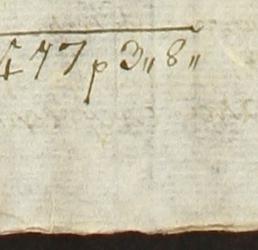 477 p 3 〃 8 〃